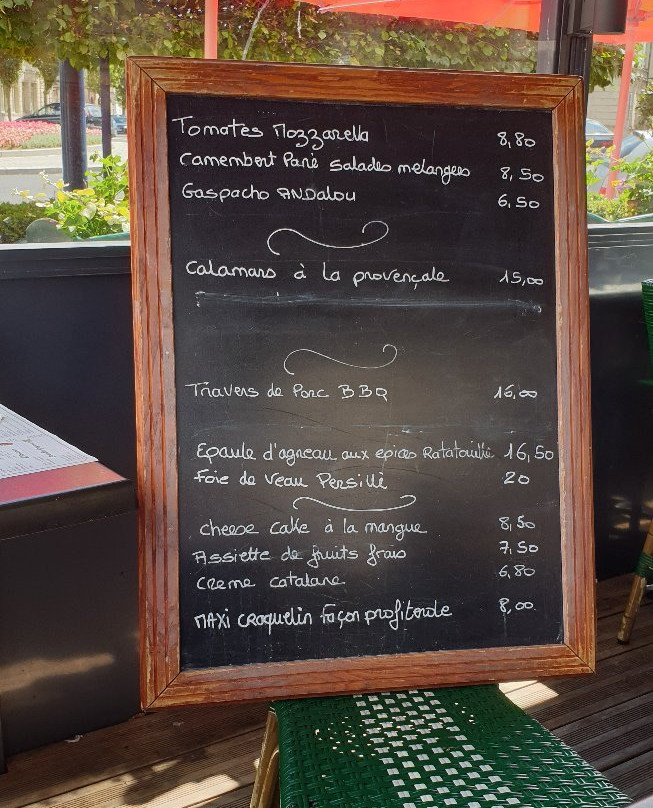 Tomates Mozzarella 8,80
Camembert Pané salades mélangées 8,50
Gaspacho ANDalou 6,50
Calamars à la provençale 15,00
Travers de Porc BBQ 16,00
Epaule d'agneau aux epices Ratatouille 16,50
Foie de Veau Persillé 20
cheese cake à la mangue 8,50
Assiette de fruits frais 7,50
creme catalane 6,80
MAXi craquelin façon profiterole 8,00